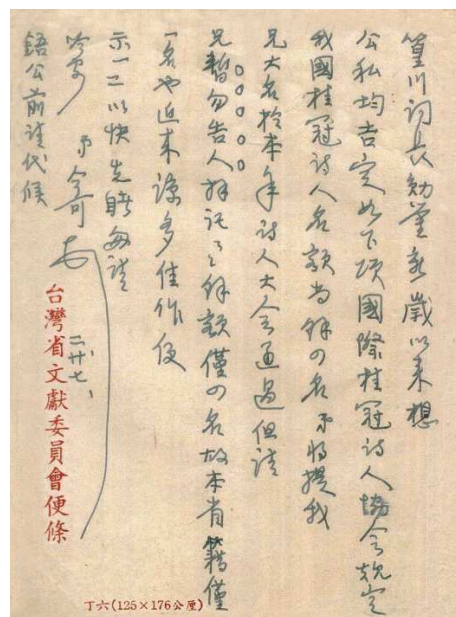 篁川詞長勛鑒新歲以來想
公私均吉定如下項國際桂冠詩人協会規定
我國桂冠詩人名額尚餘の名弟將提我
兄大名於本年詩人大会通過但請
兄暫勿告人拜託々々餘額僅の名故本省籍僅
一名也近來諒多佳作便
示一二以快先睹匆請
吟安 弟
錯公前請代候
二、廿七、
台灣省文獻委員會便條
丁六(125×176公厘)